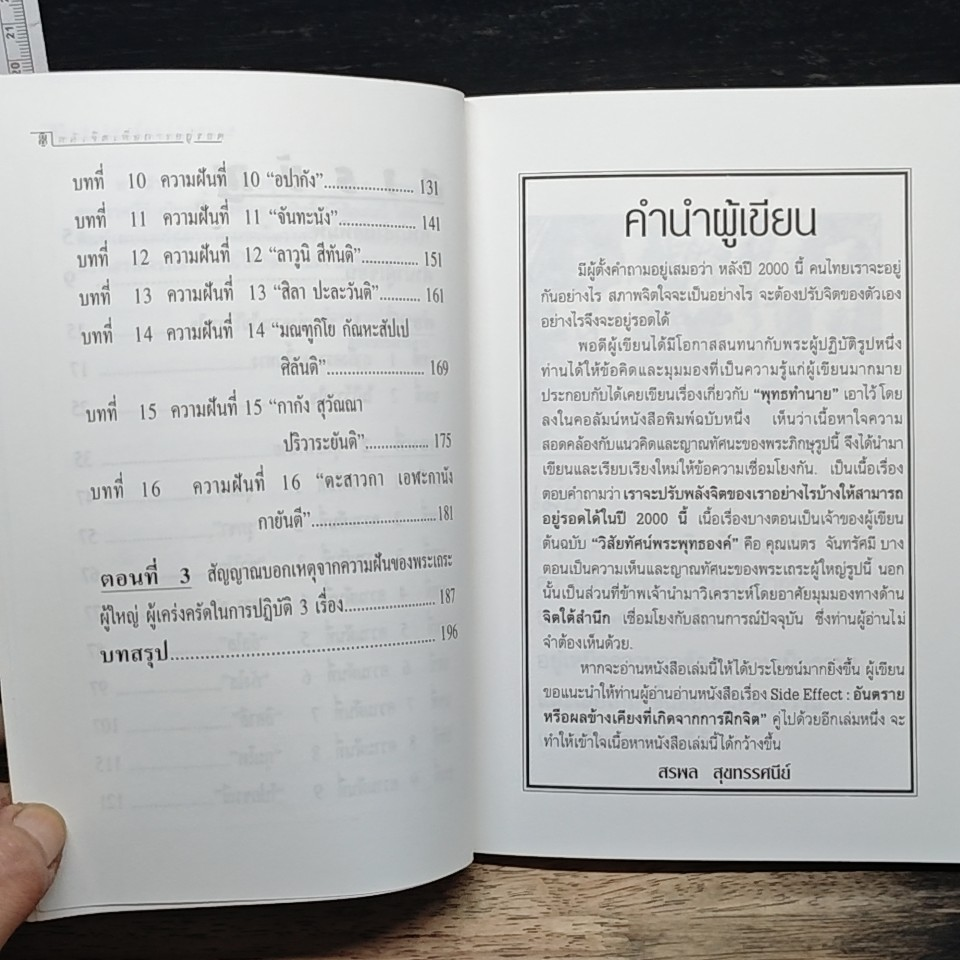 บทที่ 10 ความฝันที่ 10 “อปากัง”....................... 131
บทที่ 11 ความฝันที่ 11 “จันทะนัง”................... 141
บทที่ 12 ความฝันที่ 12 “ลาวูนิ สีทันติ”.............. 151
บทที่ 13 ความฝันที่ 13 “สิลา ปะละวันติ”.......... 161
บทที่ 14 ความฝันที่ 14 “มณฑูกิโย กัณหะสัปเป
ศิลันติ”........................ 169
บทที่ 15 ความฝันที่ 15 “กากัง สุวัณณา
ปริวาระยันติ”................ 175
บทที่ 16 ความฝันที่ 16 “ตะสาวกา เอฬะกานัง
กายันดี”...............................181
ตอนที่ 3 สัญญาณบอกเหตุจากความฝันของพระเถระ
ผู้ใหญ่ ผู้เคร่งครัดในการปฏิบัติ 3 เรื่อง....................... 187
บทสรุป................................................................ 196
คำนำผู้เขียน
มีผู้ตั้งคำถามอยู่เสมอว่า หลังปี 2000 นี้ คนไทยเราจะอยู่
กันอย่างไร สภาพจิตใจจะเป็นอย่างไร จะต้องปรับจิตของตัวเอง
อย่างไรจึงจะอยู่รอดได้
พอดีผู้เขียนได้มีโอกาสสนทนากับพระผู้ปฏิบัติรูปหนึ่ง
ท่านได้ให้ข้อคิดและมุมมองที่เป็นความรู้แก่ผู้เขียนมากมาย
ประกอบกับได้เคยเขียนเรื่องเกี่ยวกับ “พุทธทำนาย” เอาไว้ โดย
ลงในคอลัมน์หนังสือพิมพ์ฉบับหนึ่ง เห็นว่าเนื้อหาใจความ
สอดคล้องกับแนวคิดและญาณทัศนะของพระภิกษุรูปนี้ จึงได้นำมา
เขียนและเรียบเรียงใหม่ให้ข้อความเชื่อมโยงกัน. เป็นเนื้อเรื่อง
ตอบคำถามว่า เราจะปรับพลังจิตของเราอย่างไรบ้างให้สามารถ
อยู่รอดได้ในปี 2000 นี้ เนื้อเรื่องบางตอนเป็นเจ้าของผู้เขียน
ต้นฉบับ “วิสัยทัศน์พระพุทธองค์” คือ คุณเนตร จันทรัศมี บาง
ตอนเป็นความเห็นและญาณทัศนะของพระเถระผู้ใหญ่รูปนี้ นอก
นั้นเป็นส่วนที่ข้าพเจ้านำมาวิเคราะห์โดยอาศัยมุมมองทางด้าน
จิตใต้สำนึก เชื่อมโยงกับสถานการณ์ปัจจุบัน ซึ่งท่านผู้อ่านไม่
จำต้องเห็นด้วย.
หากจะอ่านหนังสือเล่มนี้ให้ได้ประโยชน์มากยิ่งขึ้น ผู้เขียน
ขอแนะนำให้ท่านผู้อ่านอ่านหนังสือเรื่อง Side Effect : อันตราย
หรือผลข้างเคียงที่เกิดจากการฝึกจิต” คู่ไปด้วยอีกเล่มหนึ่ง จะ
ทำให้เข้าใจเนื้อหาหนังสือเล่มนี้ได้กว้างขึ้น
สรพล สุขทรรศนีย์
21
20